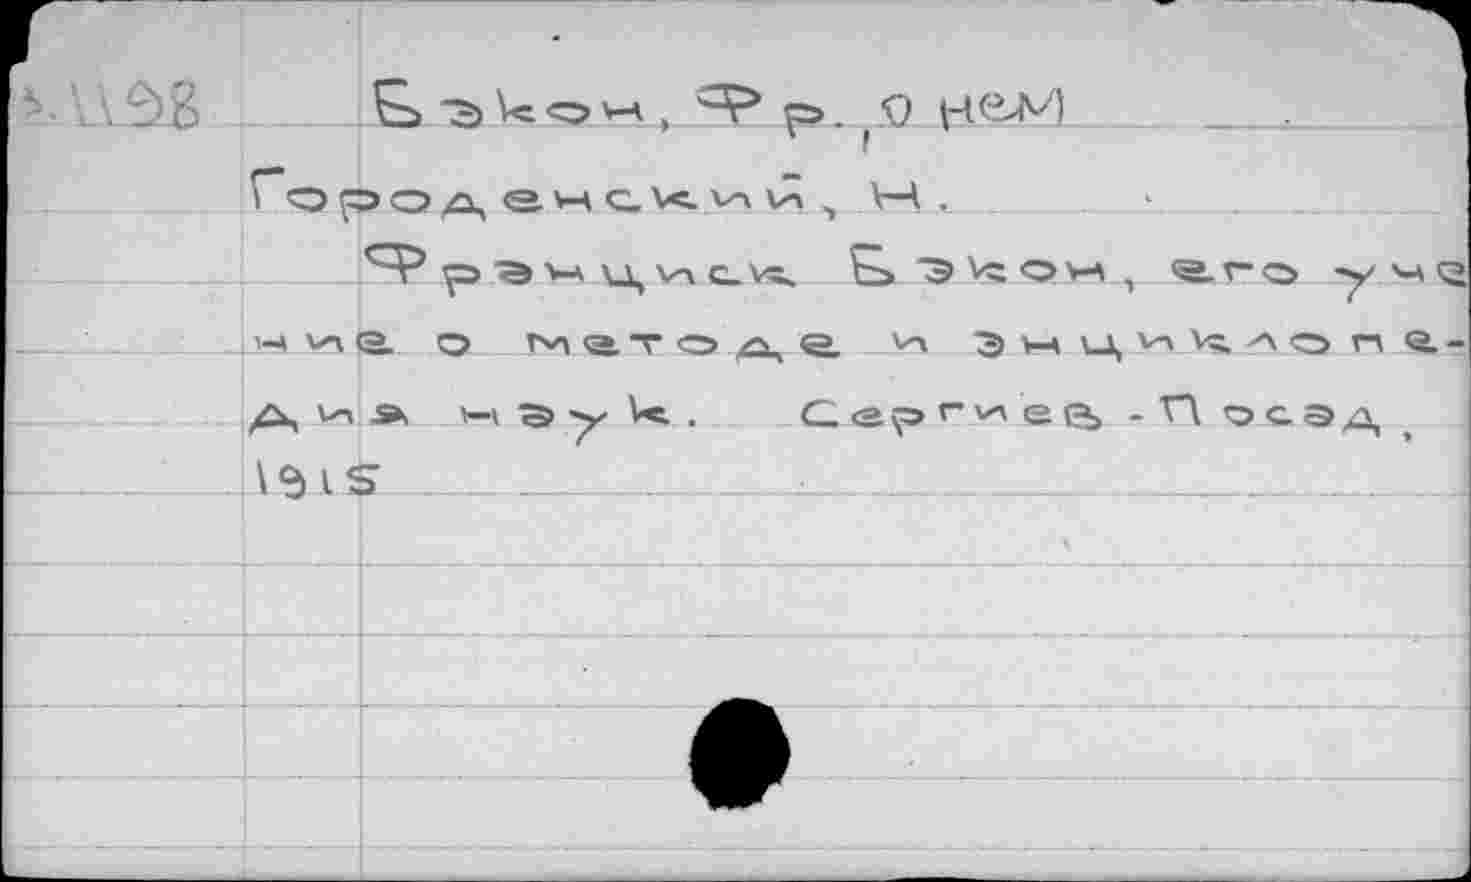 Бэкон, Фр. , о нем
Городенский, Н.
Фрэнциск Бэкон, его уче
ние о методе и энциклопе-
дия нэук. Сергиев-Посэд,
1915